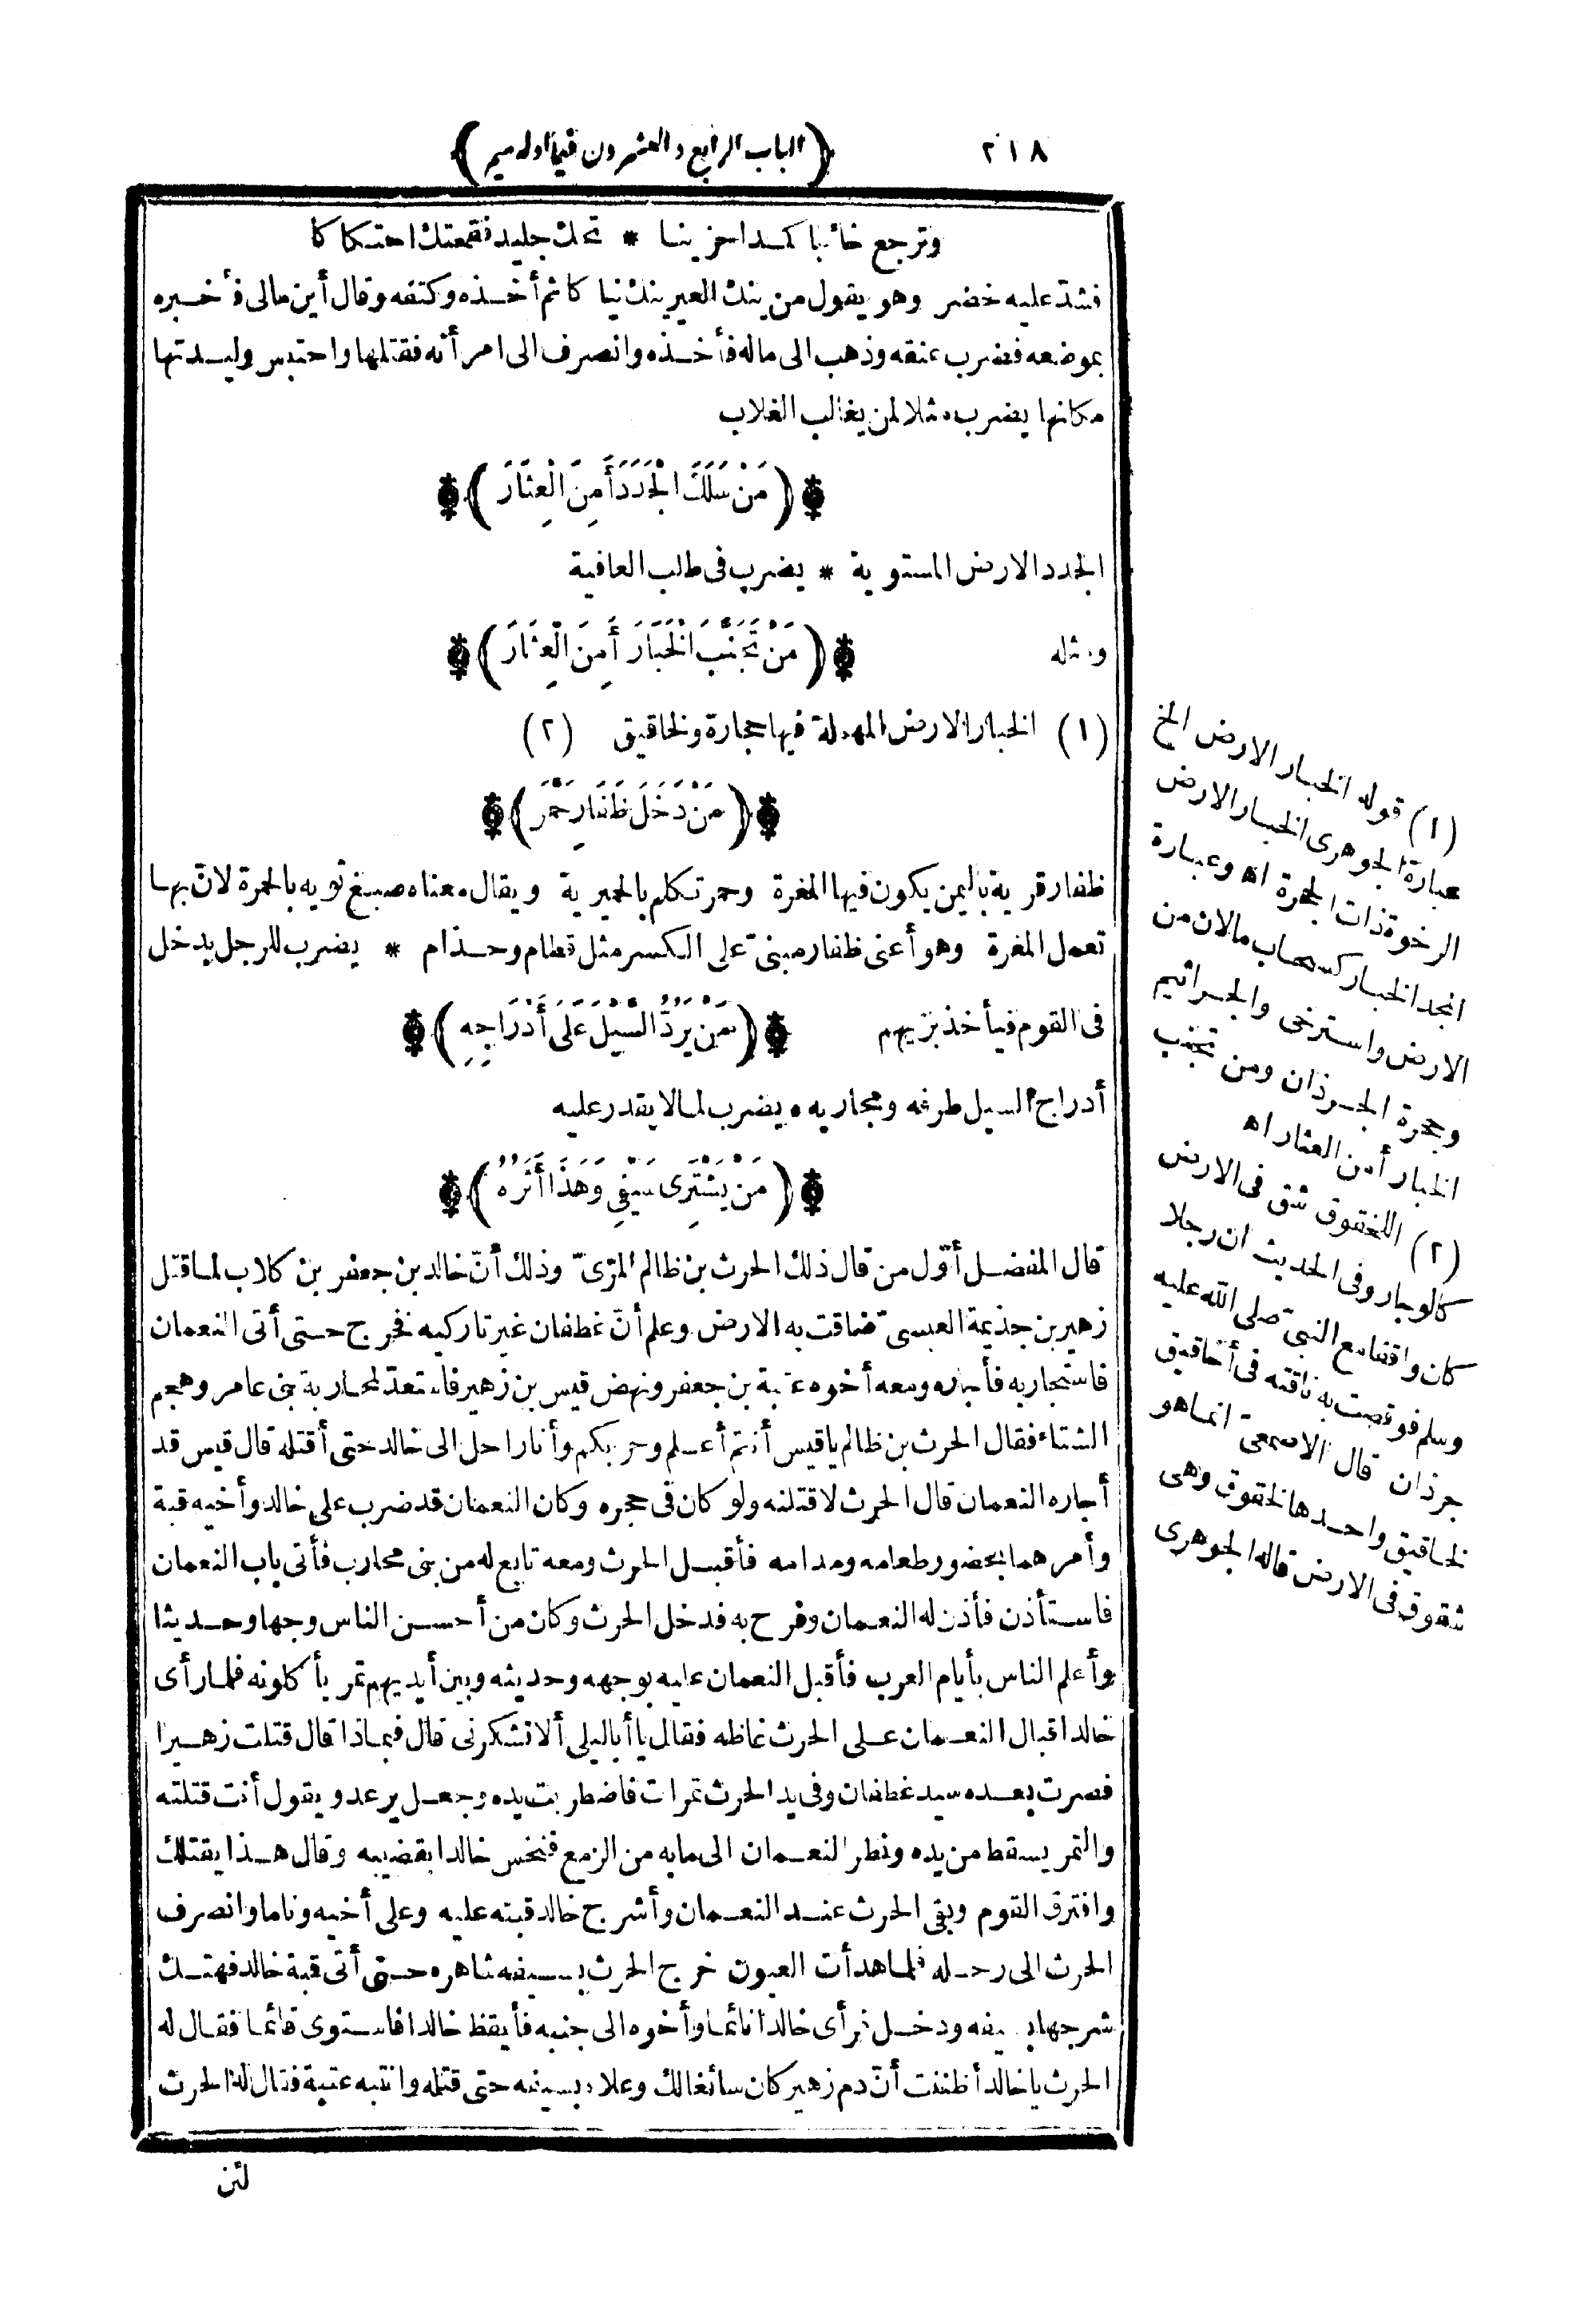 ٢١٨
﴿الباب الرابع والعشرون فيما اوله ميم﴾
وترجع خائبا كمدا حزينا * تحك جليد فقعتك احتكاكا
فشد عليه خضر وهو يقول من ينك العير ينك نياكا ثم أخذه وكتفه وقال أين مالى فأخبره
بموضعه فضرب عنقه وذهب الى ماله فأخذه وانصرف الى امرأته فقتلها واحتبس وليدتها
مكانها يضرب مثلا لمن يغالب الغلاب
﴿مَنْ سَلَكَ الْجَدَدَ أَمِنَ الْعِثَارَ﴾
الجدد الارض المستوية * يضرب فى طلب العافية
ومثله ﴿مَنْ تَجَنَّبَ الْخَبَارَ أَمِنَ الْعِثَارَ﴾
(١) الخبار الارض المهملة فيها حجارة ولخاقيق (٢)
﴿مَنْ دَخَلَ ظَفَارِ حَمَّرَ﴾
ظفار قرية باليمن يكون فيها المغرة وحمر تكلم بالحميرية ويقال معناه صبغ ثوبه بالحمرة لانّ بها
تعمل المغرة وهو أعنى ظفار مبنىّ على الكسر مثل قطام وحذام * يضرب للرجل يدخل
فى القوم فيأخذ بزيهم ﴿مَنْ يَرُدُّ السَّيْلَ عَلَى أَدْرَاجِهِ﴾
أدراج السيل طرقه ومجاريه * يضرب لما لا يقدر عليه
﴿مَنْ يَشْتَرِى سَيْفِى وَهَذَا أَثَرُهُ﴾
قال المفضل أوّل من قال ذلك الحرث بن ظالم المرّىّ وذلك أنّ خالد بن جعفر بن كلاب لما قتل
زهير بن جذيمة العبسىّ ضاقت به الارض وعلم أنّ غطفان غير تاركيه فخرج حتى أتى النعمان
فاستجار به فأجاره ومعه أخوه عتبة بن جعفر ونهض قيس بن زهير فاستعدّ لمحاربة بنى عامر وهجم
الشتاء فقال الحرث بن ظالم يا قيس أنتم أعلم وحربكم وأنا راحل الى خالد حتى أقتله قال قيس قد
أجاره النعمان قال الحرث لاقتلنه ولو كان فى حجره وكان النعمان قد ضرب على خالد وأخيه قبة
وأمرهما بحضور طعامه ومدامه فأقبل الحرث ومعه تابع له من بنى محارب فأتى باب النعمان
فاستأذن فأذن له النعمان وفرح به فدخل الحرث وكان من أحسن الناس وجها وحديثا
وأعلم الناس بأيام العرب فأقبل النعمان عليه بوجهه وحديثه وبين أيديهم تمر يأكلونه فلما رأى
خالد اقبال النعمان على الحرث غاظه فقال يا أبا ليلى ألا تشكرنى قال فيماذا قال قتلت زهيرا
فصرت بعده سيد غطفان وفى يد الحرث تمرات فاضطربت يده وجعل يرعد ويقول أنت قتلته
والتمر يسقط من يده ونظر النعمان الى ما به من الزمع فنخس خالدا بقضيبه وقال هذا يقتلك
وافترق القوم وبقى الحرث عند النعمان وأشرج خالد قبته عليه وعلى أخيه وناما وانصرف
الحرث الى رحله فلما هدأت العيون خرج الحرث بسيفه شاهره حتى أتى قبة خالد فهتك
شرجها بسيفه ودخل فرأى خالدا نائما وأخوه الى جنبه فأيقظ خالدا فاستوى قائما فقال له
الحرث يا خالد أظننت أنّ دم زهير كان سائغا لك وعلاه بسيفه حتى قتله وانتبه عتبة فقال له الحرث
لئن
(١) قوله الخبار الارض الخ
عبارة الجوهرى الخبار الارض
الرخوة ذات الجحرة اه وعبارة
المجد الخبار كسحاب ما لان من
الارض واسترخى والجراثيم
وجحرة الجرذان ومن تجنب
الخبار أمن العثار اه
(٢) اللخقوق شق فى الارض
كالوجار وفى الحديث ان رجلا
كان واقفا مع النبىّ صلى الله عليه
وسلم فوقصت به ناقته فى أخاقيق
جرذان قال الاصمعىّ انما هو
لخاقيق واحدها لخقوق وهى
شقوق فى الارض قاله الجوهرى